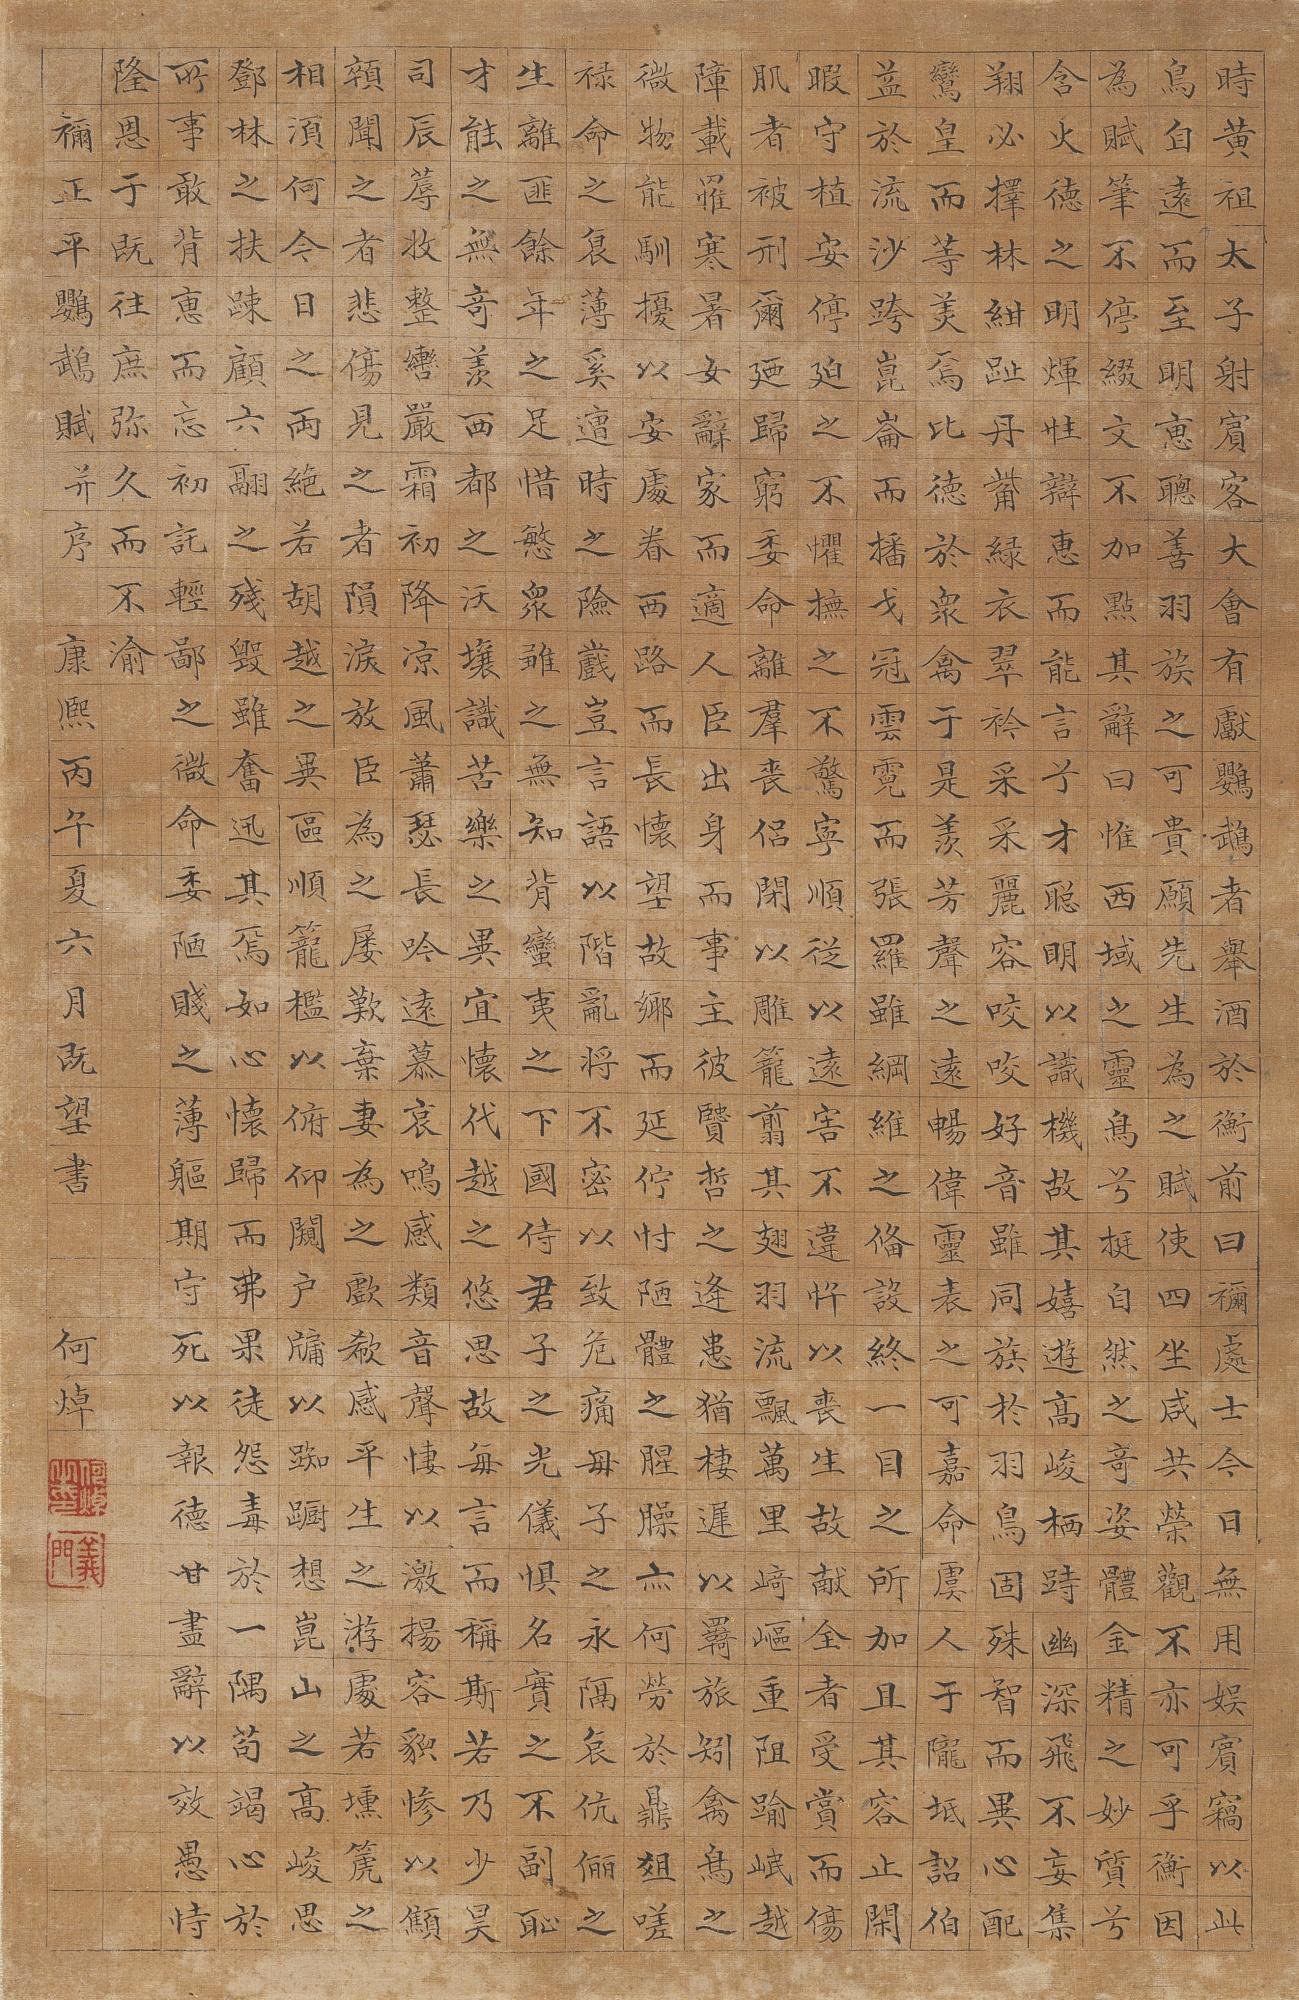 時黃祖太子射賓客大會有獻鸚鵡者舉酒於衡前曰禰處士今日無用娛賓竊以此
鳥自遠而至明恵聰善羽族之可貴願先生為之賦使四坐咸共榮觀不亦可乎衡因
為賦筆不停綴文不加點其辭曰惟西域之靈鳥兮挺自然之奇姿體金精之妙質兮
含火德之明煇性辯惠而能言兮才聡明以識機故其嬉遊高峻栖跱幽深飛不妄集
翔必擇林紺趾丹觜緑衣翠衿采采麗容咬咬好音雖同族於羽鳥固殊智而異心配
鸞皇而等美焉比德於衆禽于是羨芳聲之遠暢偉靈表之可嘉命虞人于隴坻詔伯
益於流沙跨崑崙而播弋冠雲霓而張羅雖綱維之俻設終一目之所加且其容止閑
暇守植安停廹之不懼撫之不驚寧順從以遠害不違忤以喪生故献全者受賞而傷
肌者被刑爾廼歸窮委命離羣喪侶閉以雕籠翦其翅羽流飄萬里崎嶇重阻踰岷越
障載罹寒暑女辭家而適人臣出身而事主彼賢哲之逢患猶棲遲以羇旅矧禽鳥之
微物能馴擾以安處眷西路而長懷望故鄉而延佇忖陋體之腥臊亦何勞於鼎俎嗟
祿命之衰薄奚遭時之險巇豈言語以階亂将不密以致危痛毋子之永隔哀伉儷之
生離匪餘年之足惜慜衆雖之無知背蠻夷之下國侍君子之光儀惧名實之不副恥
才能之無奇羨西都之沃壤識苦樂之異宜懷代越之悠思故每言而稱斯若乃少昊
司辰蓐收整轡嚴霜初降凉風蕭瑟長吟遠慕哀鳴感類音聲悽以激揚容貌惨以顦
顇聞之者悲傷見之者隕淚放臣為之屡歎棄妻為之歔欷感平生之游處若壎箎之
相湏何今日之兩絶若胡越之異區順籠檻以俯仰闚户牖以踟蹰想崑山之高峻思
鄧林之扶踈顧六翮之残毀雖奮迅其焉如心懷歸而弗果徒怨毒於一隅苟竭心於
所事敢背恵而忘初託輕鄙之微命委陋賤之薄軀期守死以報德甘盡辭以效愚恃
隆恩于既往庶弥久而不渝
禰正平鸚鵡賦并序 康熈丙午夏六月既望書 何焯
何焯之印
義門